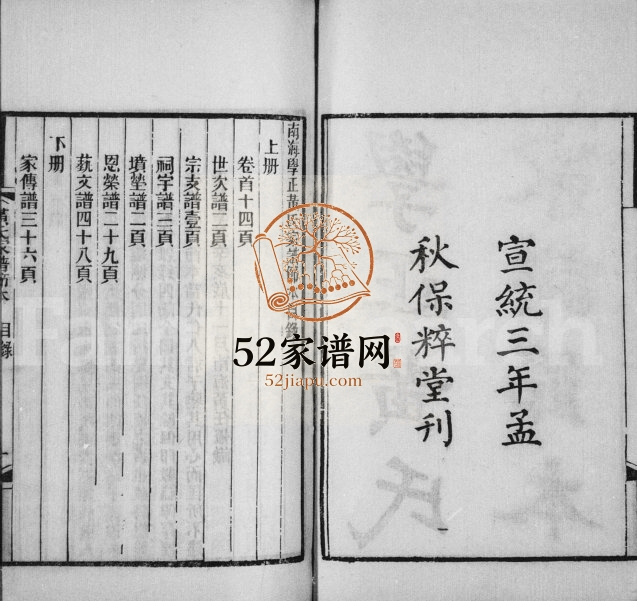 宣統三年孟
秋保粹堂刊
南海學正黃氏家譜節本目錄
上册
卷首十四頁
世次譜二頁
宗支譜壹頁
祠宇譜三頁
墳塋譜二頁
恩榮譜二十九頁
藝文譜四十八頁
下册
家傳譜三十六頁
黃氏家譜節本 目錄
52家谱网
52jiapu.com